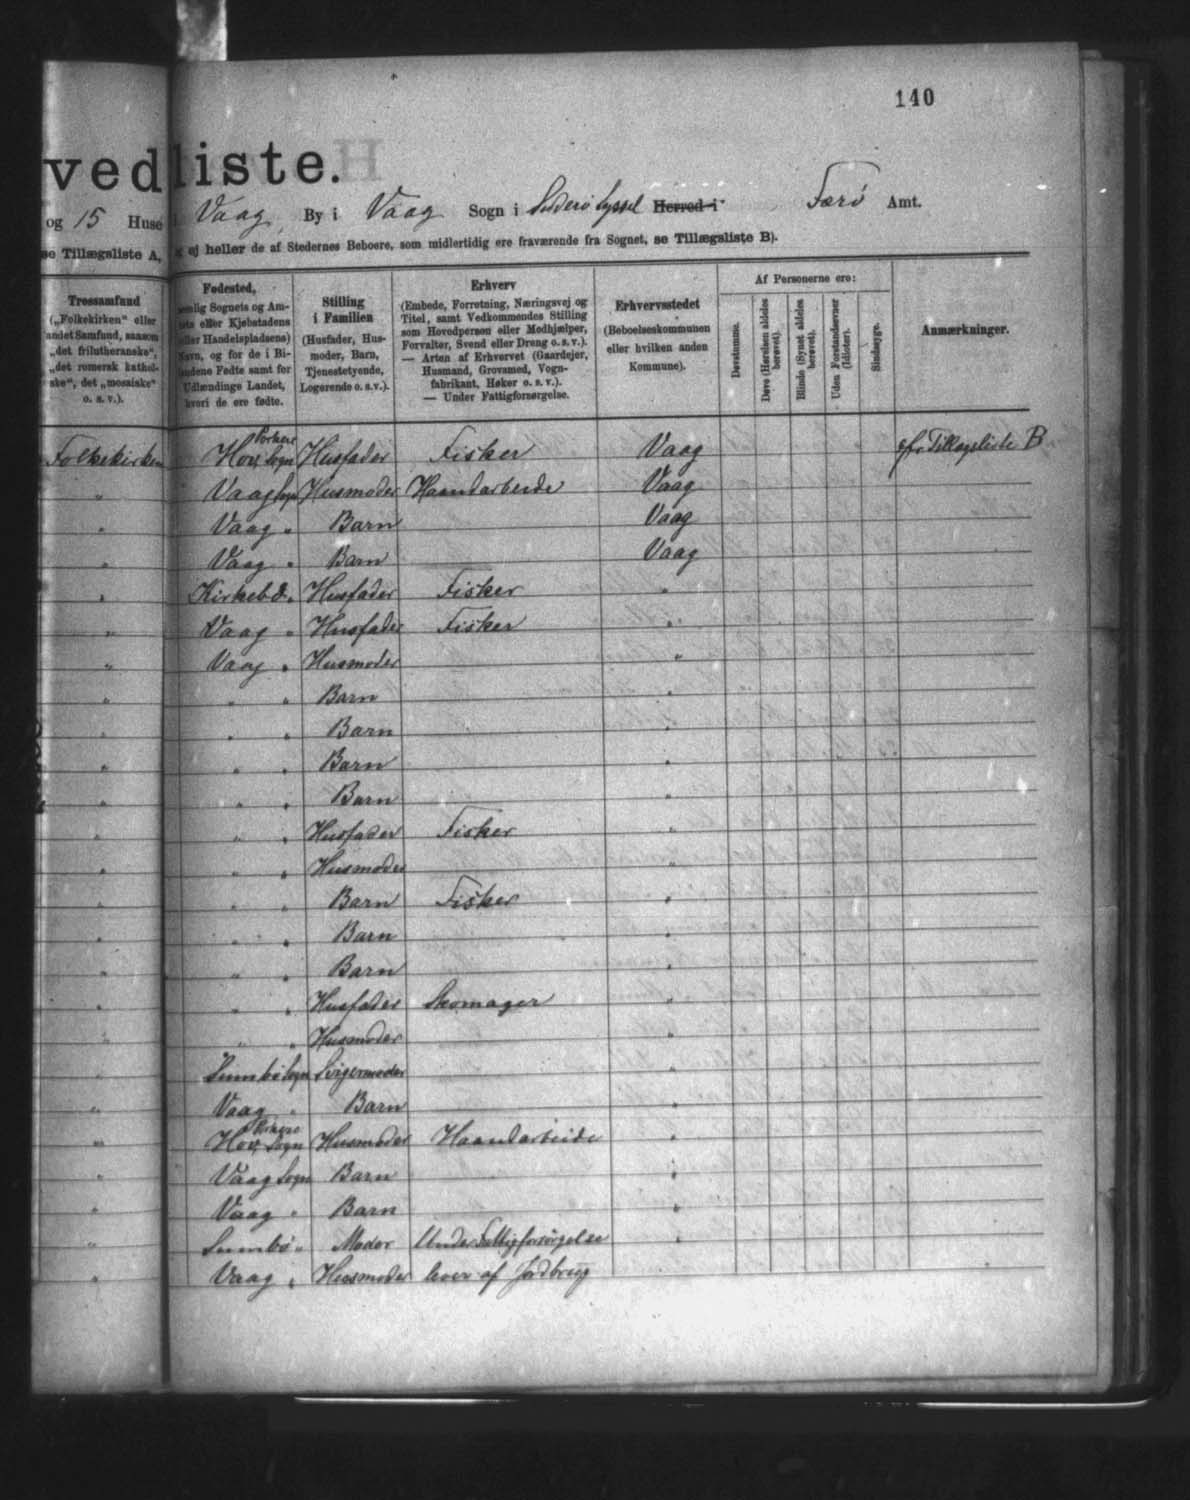 140
vedliste.
og 15 Huse i Vaag By i Vaag Sogn i Suderø Syssel Herred i Færø Amt.
se Tillægsliste A, ej heller de af Stedernes Beboere, som midlertidig ere fraværende fra Sognet, se Tillægsliste B).
Trossamfund
(„Folkekirken" eller
andet Samfund, saasom
„det frilutheranske",
„det romersk kathol-
ske", det „mosaiske"
o. s. v.).
Fødested,
nemlig Sognets og Am-
tets eller Kjøbstadens
(eller Handelspladsens)
Navn, og for de i Bi-
landene Fødte samt for
Udlændinge Landet,
hvori de ere fødte.
Stilling
i Familien
(Husfader, Hus-
moder, Barn,
Tjenestetyende,
Logerende o. s. v.).
Erhverv
(Embede, Forretning, Næringsvej og
Titel, samt Vedkommendes Stilling
som Hovedperson eller Medhjælper,
Forvalter, Svend eller Dreng o. s. v.).
— Arten af Erhvervet (Gaardejer,
Husmand, Grovsmed, Vogn-
fabrikant, Høker o. s. v.).
— Under Fattigforsørgelse.
Erhvervsstedet
(Beboelseskommunen
eller hvilken anden
Kommune).
Af Personerne ere:
Døvstumme.
Døve (Hørelsen aldeles berøvet).
Blinde (Synet aldeles berøvet).
Uden Forstandsevner (Idioter).
Sindssyge.
Anmærkninger.
Folkekirken Hov, Porkere Sogn Husfader Fisker Vaag cfr Tillægsliste B
" Vaag Sogn Husmoder Haandarbeide Vaag
" Vaag " Barn Vaag
" Vaag " Barn Vaag
" Kirkebø " Husfader Fisker "
" Vaag " Husfader Fisker "
" Vaag " Husmoder "
" " " Barn "
" " " Barn "
" " " Barn "
" " " Barn "
" " " Husfader Fisker "
" " " Husmoder "
" " " Barn Fisker "
" " " Barn "
" " " Barn "
" " " Husfader Skomager "
" " " Husmoder "
" Sumbø Sogn Svigermoder "
" Vaag " Barn "
" Hov, Porkere Sogn Husmoder Haandarbeide "
" Vaag Sogn Barn "
" Vaag " Barn "
" Sumbø " Moder Under Fattigforsørgelse "
" Vaag " Husmoder lever af Jordbrug